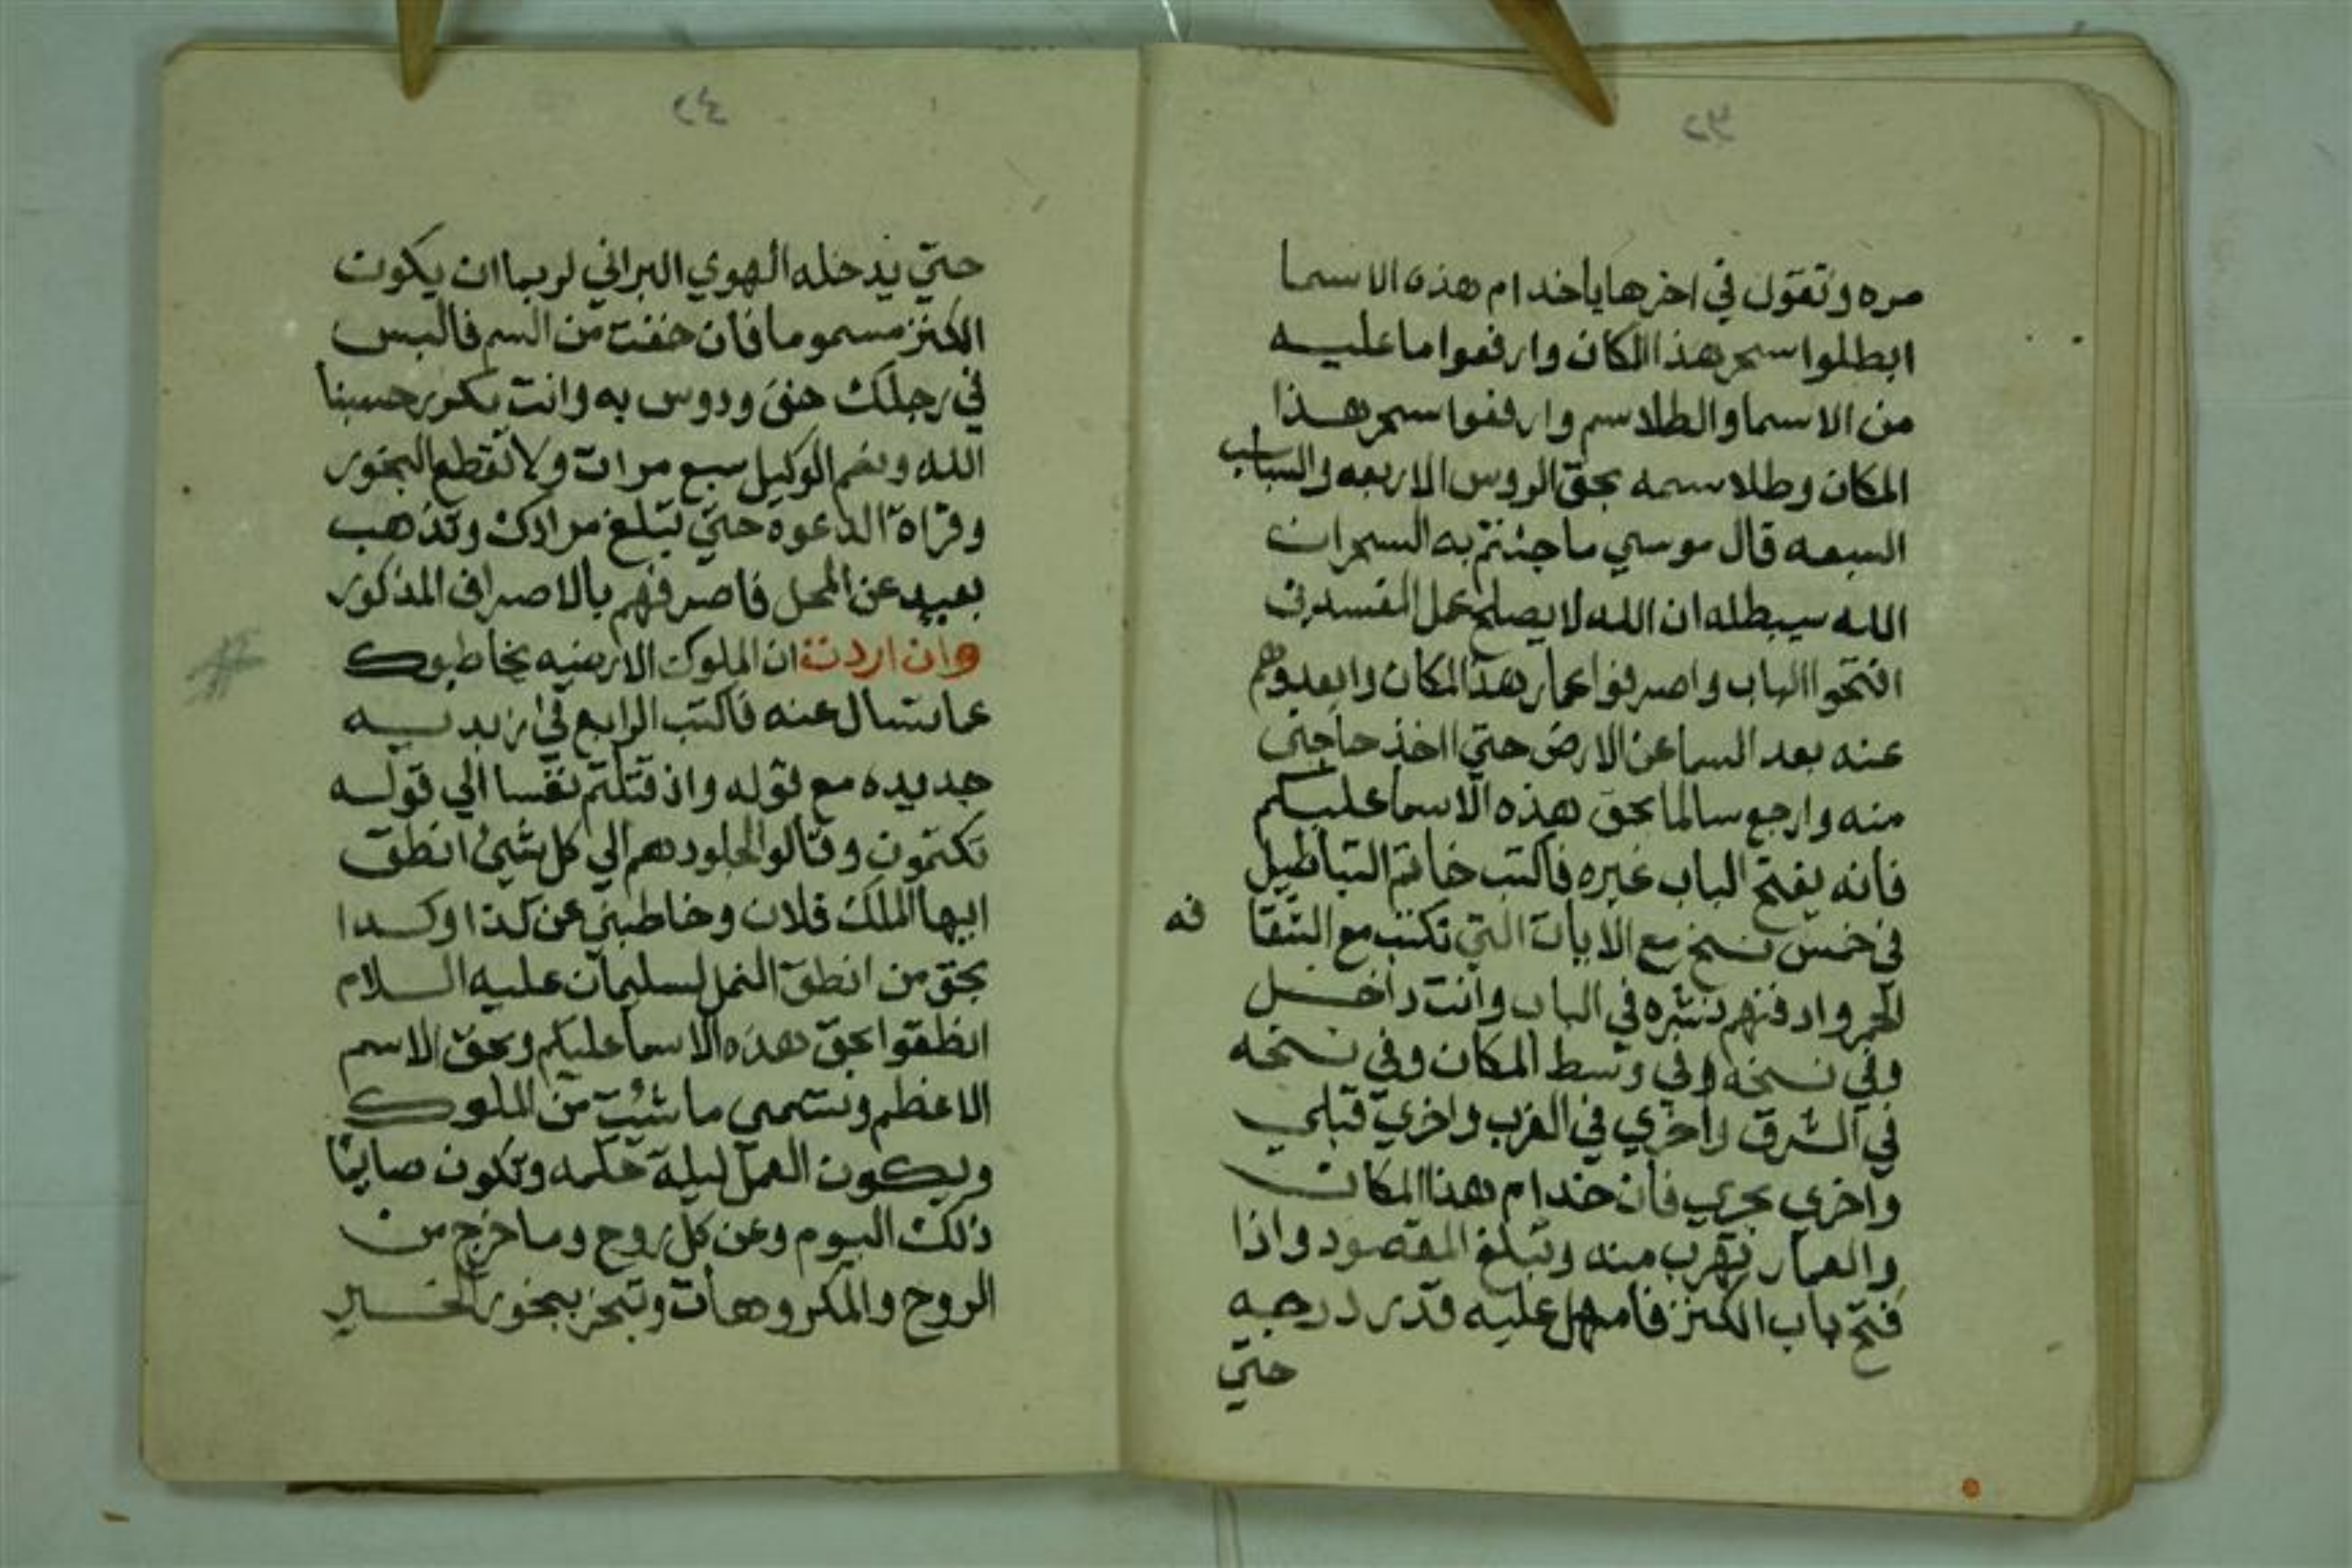 مره وتقول في اخرها ياخدام هذه الاسما
ابطلوا سحر هذا المكان وارفعوا ما عليه
من الاسما والطلاسم وارفعوا سحر هذا
المكان وطلاسمه بحق الروس الاربعه والسباسب
السبعه قال موسي ما جئتم به السحر ان
الله سيبطله ان الله لا يصلح عمل المفسدين
افتحوا الباب واصرفوا عمار هذا المكان وابعدوهم
عنه بعد السما عن الارض حتي اخذ حاجتى
منه وارجع سالما بحق هذه الاسما عليكم
فانه يفتح الباب غيره فاكتب خاتم التباطيل
في خمس نسخ مع الايات التي تكتب مع الشقا
فه
الحمر وادفنهم نثره في الباب وانت داخل
وفي نسخه وفي وسط المكان وفي نسخه
في الشرق واخري في الغرب واخري قبلي
واخري بحري فان خدام هذا المكان
والعمار تهرب منه وتبلغ المقصود واذا
فتح باب الكنز فامهل عليه قدر درجه
حتي
حتي يدخله الهوي البراني لربما ان يكون
الكنز مسموما فان خفت من السم فالبس
في رجلك خفى ودوس به وانت تكرر حسبنا
الله ونعم الوكيل سبع مرات ولا تقطع البخور
وقراة الدعوه حتي تبلغ مرادك وتذهب
بعيد عن المحل فاصرفهم بالاصراف المذكور
وان اردت ان الملوك الارضيه يخاطبوك
عما تسال عنه فاكتب الرابع في زبديه
جديده مع قوله واذ قتلتم نفسا الي قوله
تكتمون وقالوا لجلودهم الي كل شيئ انطق
ايها الملك فلان وخاطبني عن كذا وكدا
بحق من انطق النمل لسليمان عليه السلام
انطقوا بحق هذه الاسما عليكم وبحق الاسم
الاعظم وتسمى ما شئت من الملوك
ويكون العمل ليلة حكمه وتكون صايما
ذلك اليوم وعن كل روح وما خرج من
الروح والمكروهات وتبخر ببخور الخسير